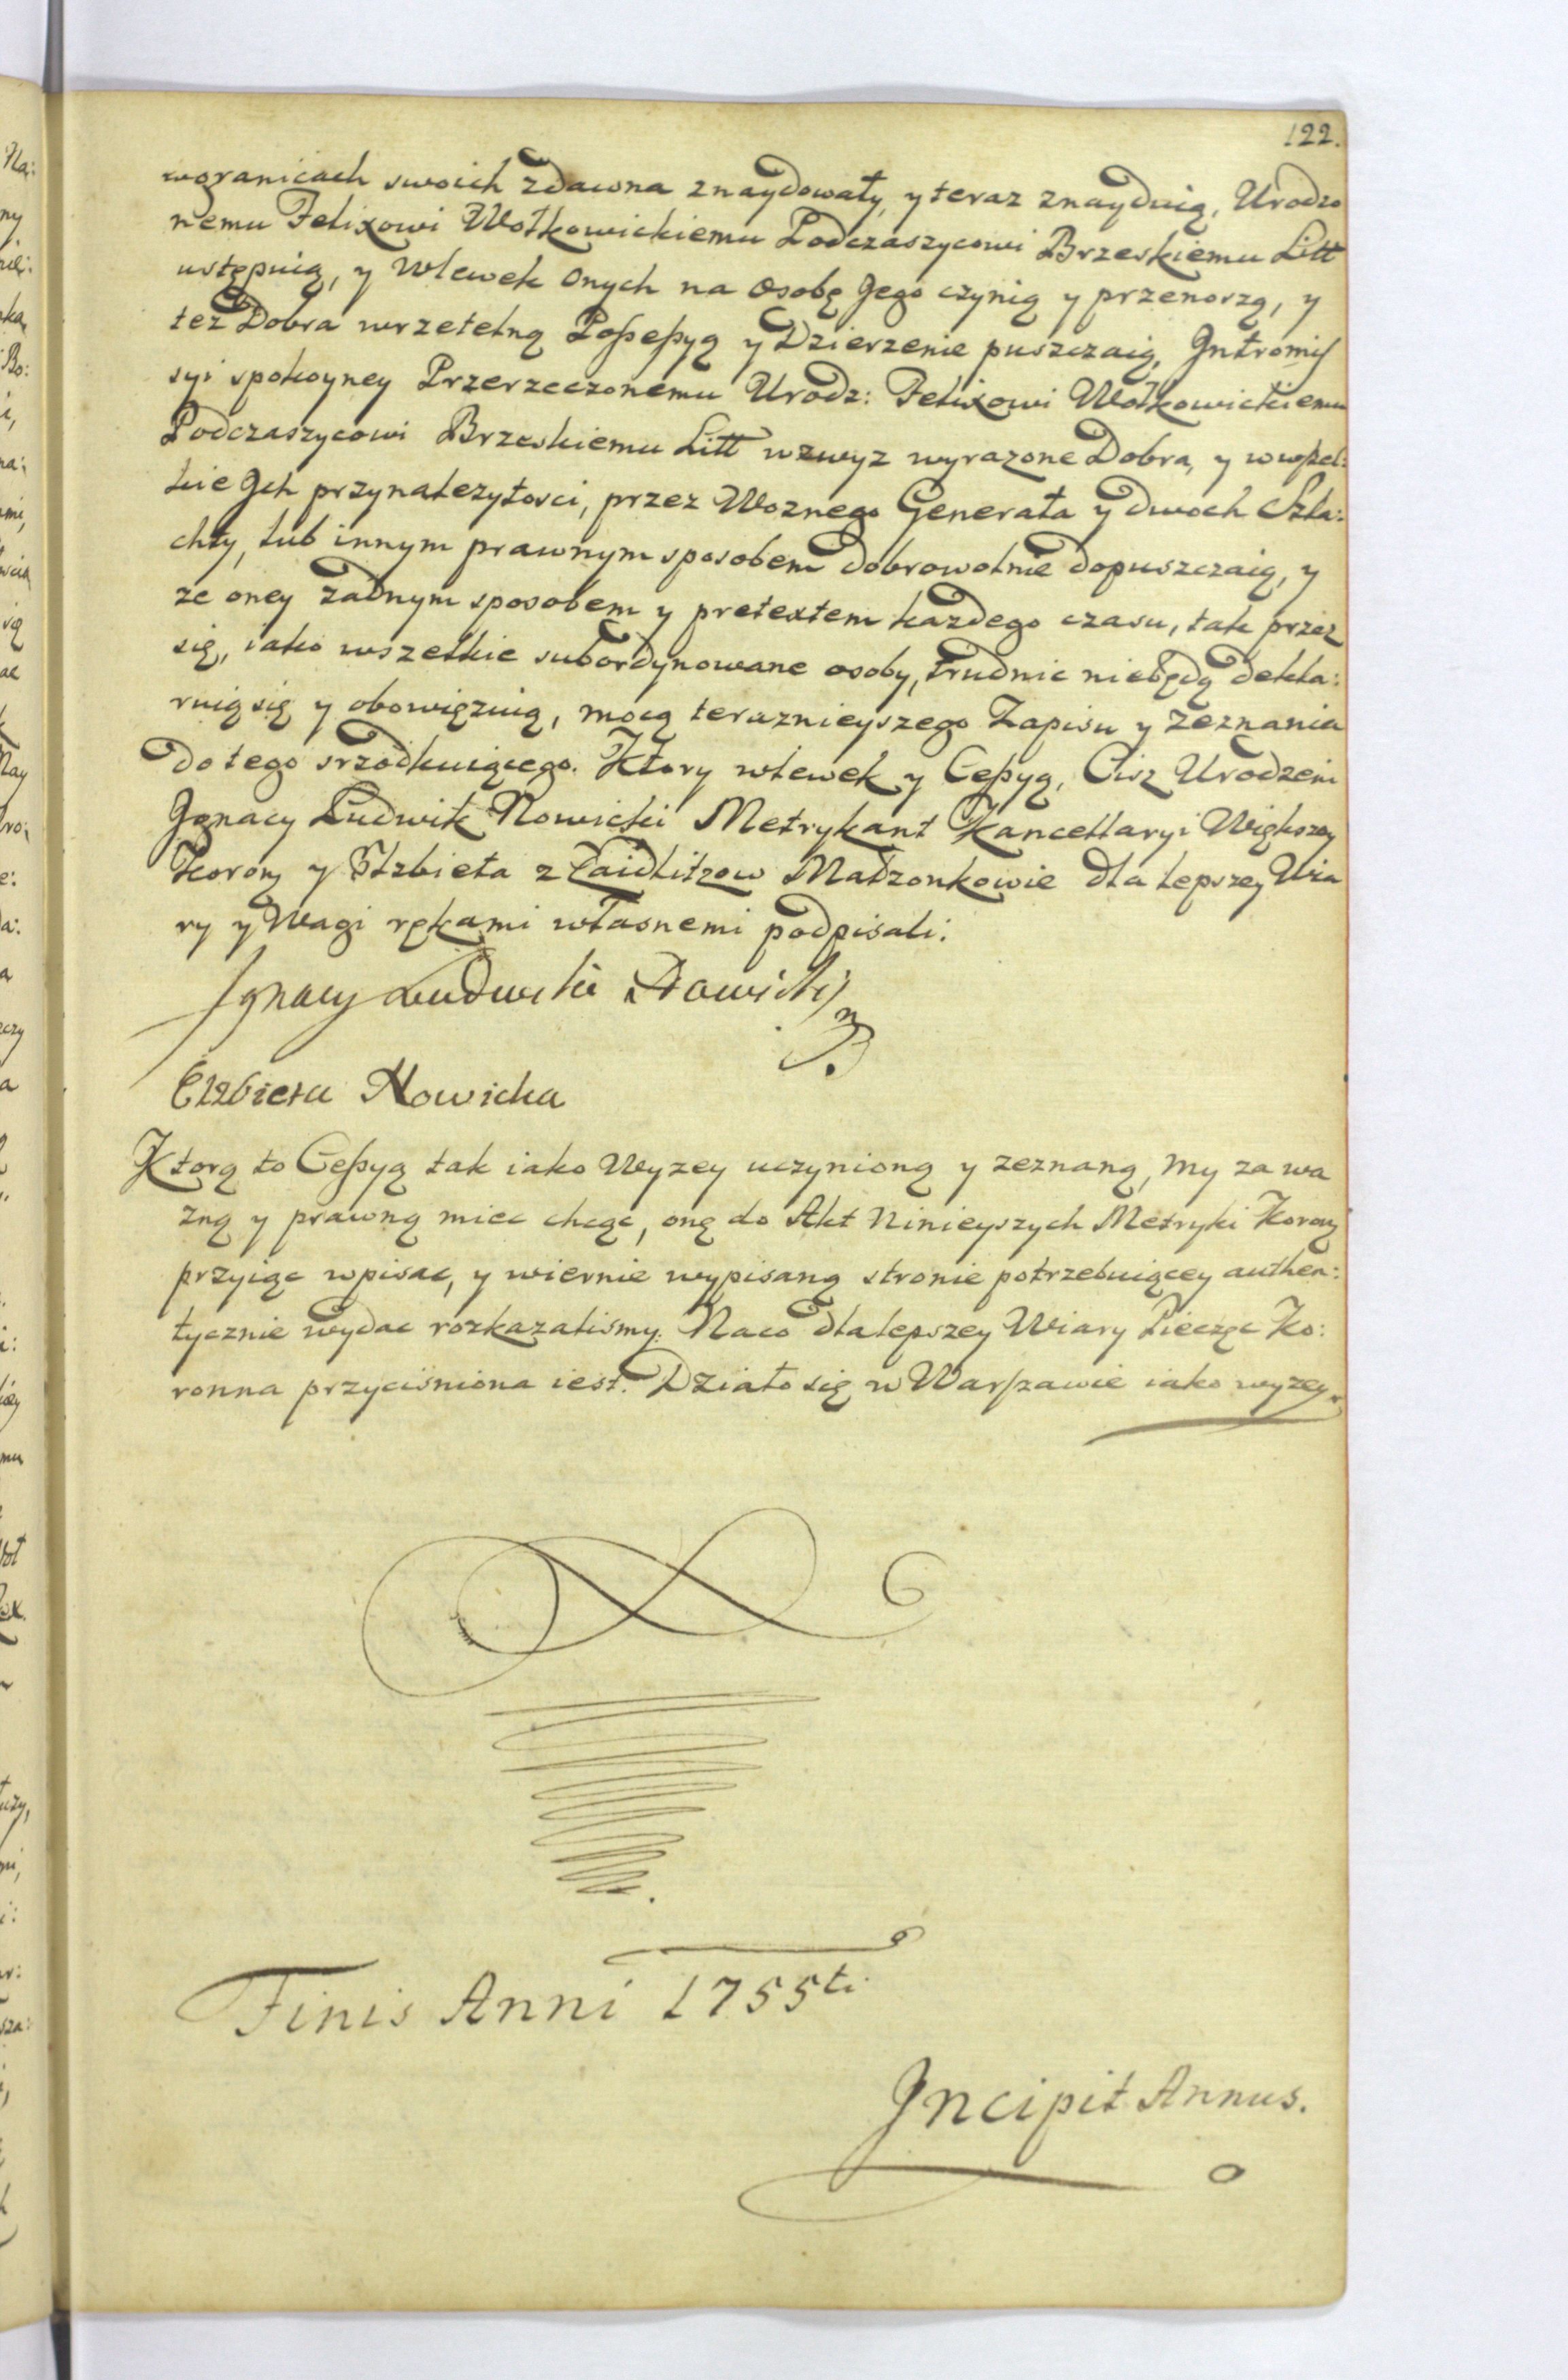 122.
wgranicach swoich zdawna znaydowały, y teraz znayduią, Urodzo
nemu Felixowi Wołkowickiemu Podczaszycowi Brzeskiemu Litt
ustępuią, y Wlewek onych na osobę Jego czynią y przenoszą, y
też Dobra wrzetelną Poßeßyą y Dzierzenie puszczaią, Jntromiſ
syi spokoyney Przerzeczonemu Urodz: Felixowi Wołkowickiemu
Podczaszycowi Brzeskiemu Litt wzwyz wyrazone Dobra, y wwßel:
kie Jch przynalezytosci, przez Woznego Generała y dwoch Szla:
chty, lub innym prawnym sposobem dobrowolnie dopuszczaią, y
ze oney zadnym sposobem y pretextem kazdego czasu, tak przez
się, iako wszelkie subordynowane osoby, trudnic niebędą dekla:
ruią się y obowięzuią, mocą teraznieyszego Zapisu y zeznania
do tego srzodkuiącego. Ktory wlewek y Ceßyą, Ciz Urodzeni
Jgnacy Ludwik Nowicki Metrykant Kancellaryi Większey
Korony y Elzbieta z Zaidlitzow Małzonkowie dla lepszey Wia
ry y Wagi rękami własnemi podpisali.
Ignacy Ludwik Nowicki
Elzbieta Nowicka
Ktorą to Ceßyą tak iako Wyzey uczynioną y zeznaną, my za wa
zną y prawną miec chcąc, onę do Akt Ninieyszych Metryki Korony
przyiąc wpisac, y wiernie wypisaną stronie potrzebuiącey authen:
tycznie wydac rozkazalismy. Naco dlalepszey Wiary Pieczęc Ko:
ronna przycisniona iest. Działo się w Warſzawie iako wyzey.
Finis Anni 1755ti
Jncipit Annus.